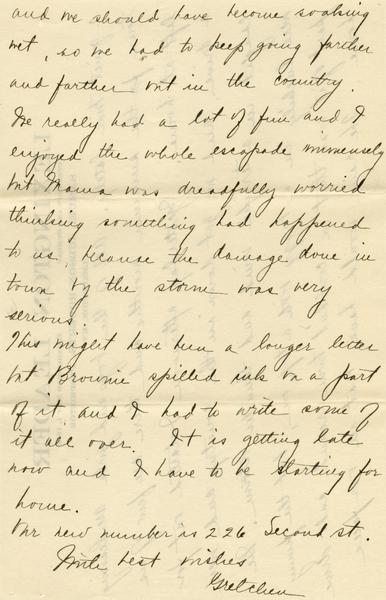 and we should have become soaking
wet, so we had to keep going farther
and farther out in the country.
We really had a lot of fun and I
enjoyed the whole escapade immensely
but Mama was dreadfully worried
thinking something had happened
to us, because the damage done in
town by the storm was very
serious.
This might have been a longer letter
but Brownie spilled ink on a part
of it and I had to write some of
it all over. It is getting late
now and I have to be starting for
home.
Our new number is 226 Second st.
With best wishes
Gretchen